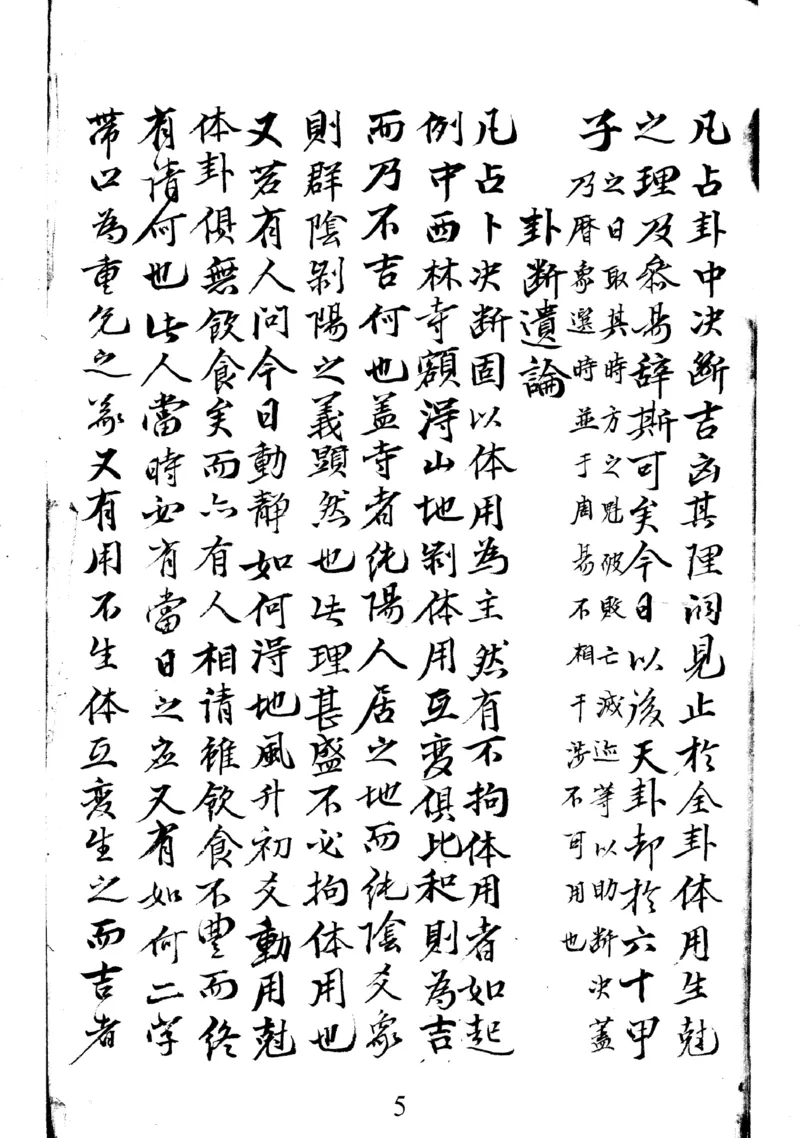 凡占卦中决断吉凶其理洞見止於全卦体用生尅
之理及叅易辞斯可矣今日以後天卦却於六十甲
子之日取其時方之魁破败亡滅迹等以助断决蓋
乃曆象選時並于周易不相干涉不可用也
卦断遺論
凡占卜决断固以体用為主然有不拘体用者如起
例中西林寺額淂山地剝体用互变俱比和則為吉
而乃不吉何也蓋寺者纯陽人居之地而纯陰爻象
則群陰剝陽之義顕然也此理甚盛不必拘体用也
又若有人问今日動静如何淂地風升初爻動用尅
体卦俱無飲食矣而亦有人相請雖飲食不豊而终
有请何也此人當時必有當日之应又有如何二字
带口為重兑之義又有用不生体互变生之而吉者
5